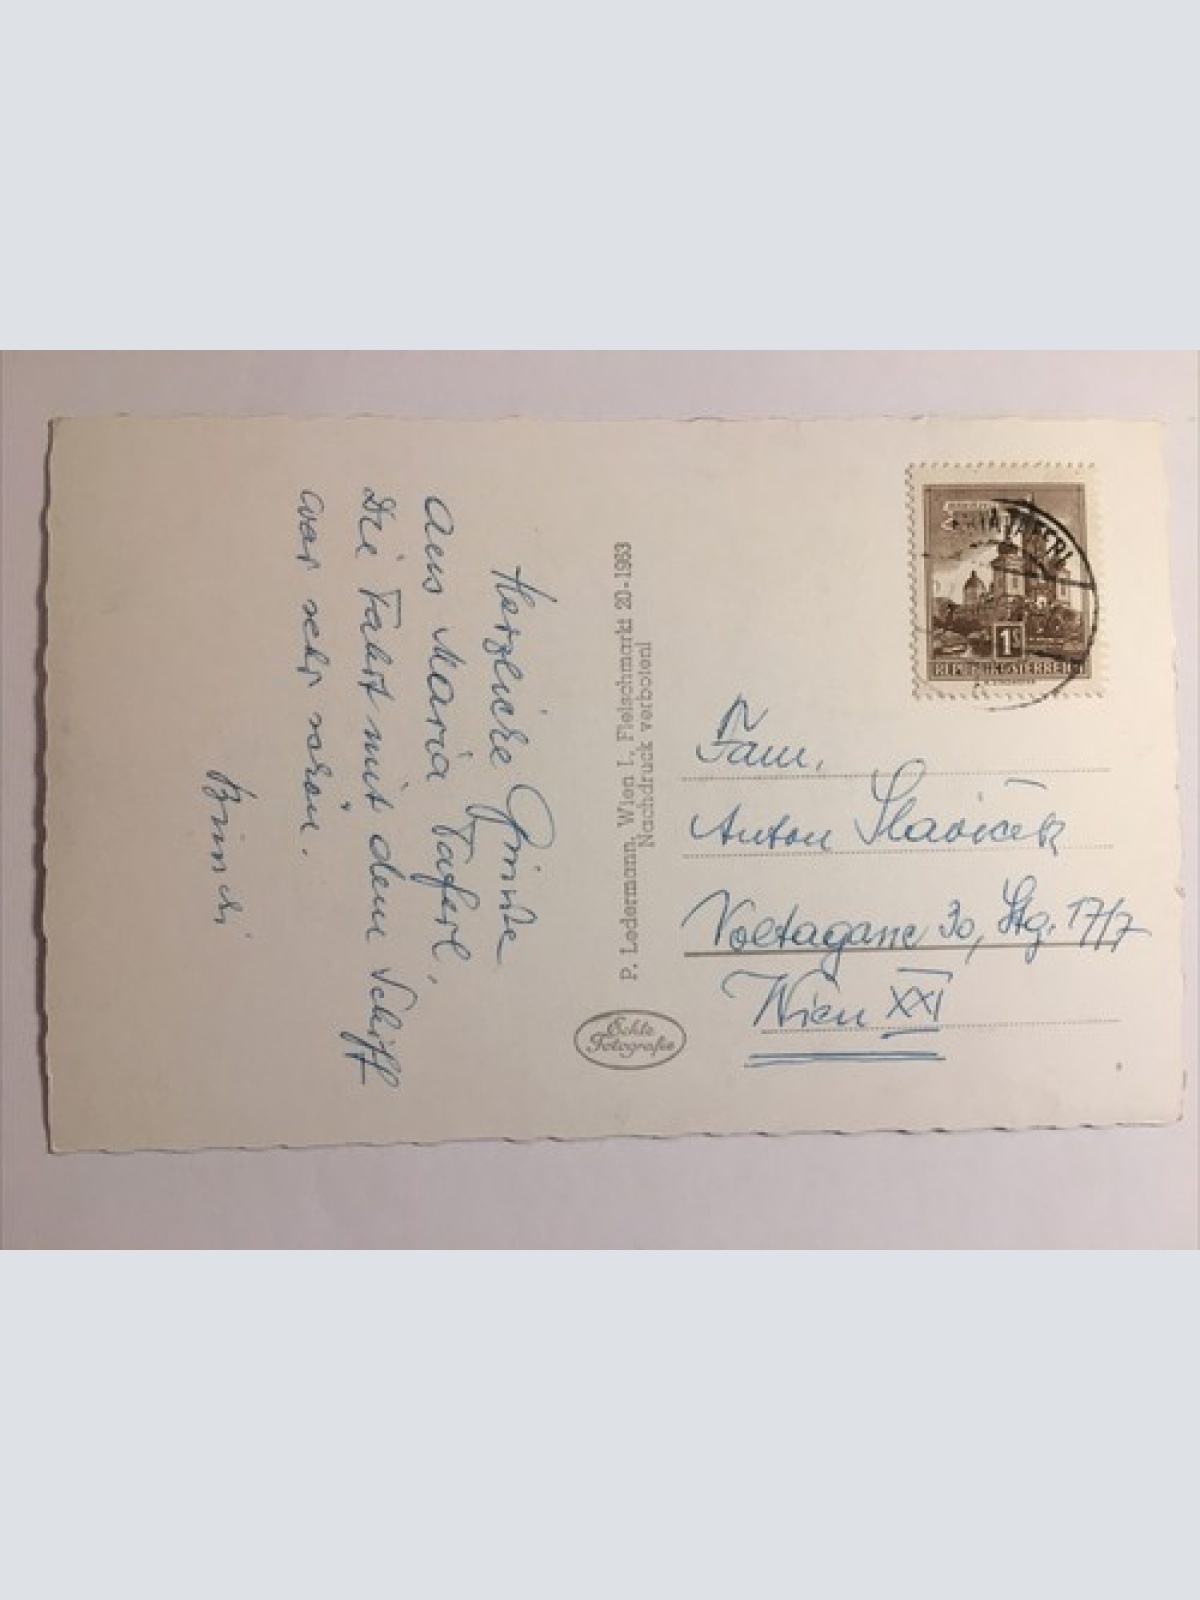 Herzliche Grüsse
aus Maria Taferl,
Die Fahrt mit dem Schiff
war sehr schön.
P. Ledermann, Wien I., Fleischmarkt 20-1963
Nachdruck verboten!
Echte
Fotografie
1S
REPUBLIK ÖSTERREICH
Fam.
Anton Slaviček
Voltagasse 30, Stg. 17/7
Wien XXI